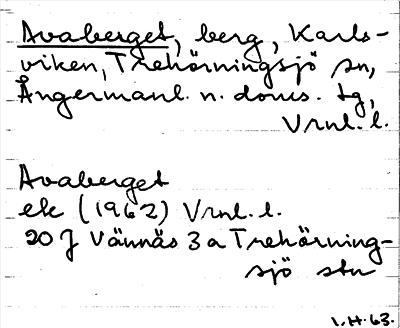 Avaberget, berg, Karls-
viken, Trehörningsjö sn,
Ångermanl. n. doms. tg,
Vrnl. l.
Avaberget
ek (1962) Vrnl. l.
20 J Vännäs 3 a Trehörning-
sjö stn
I.H. 63.